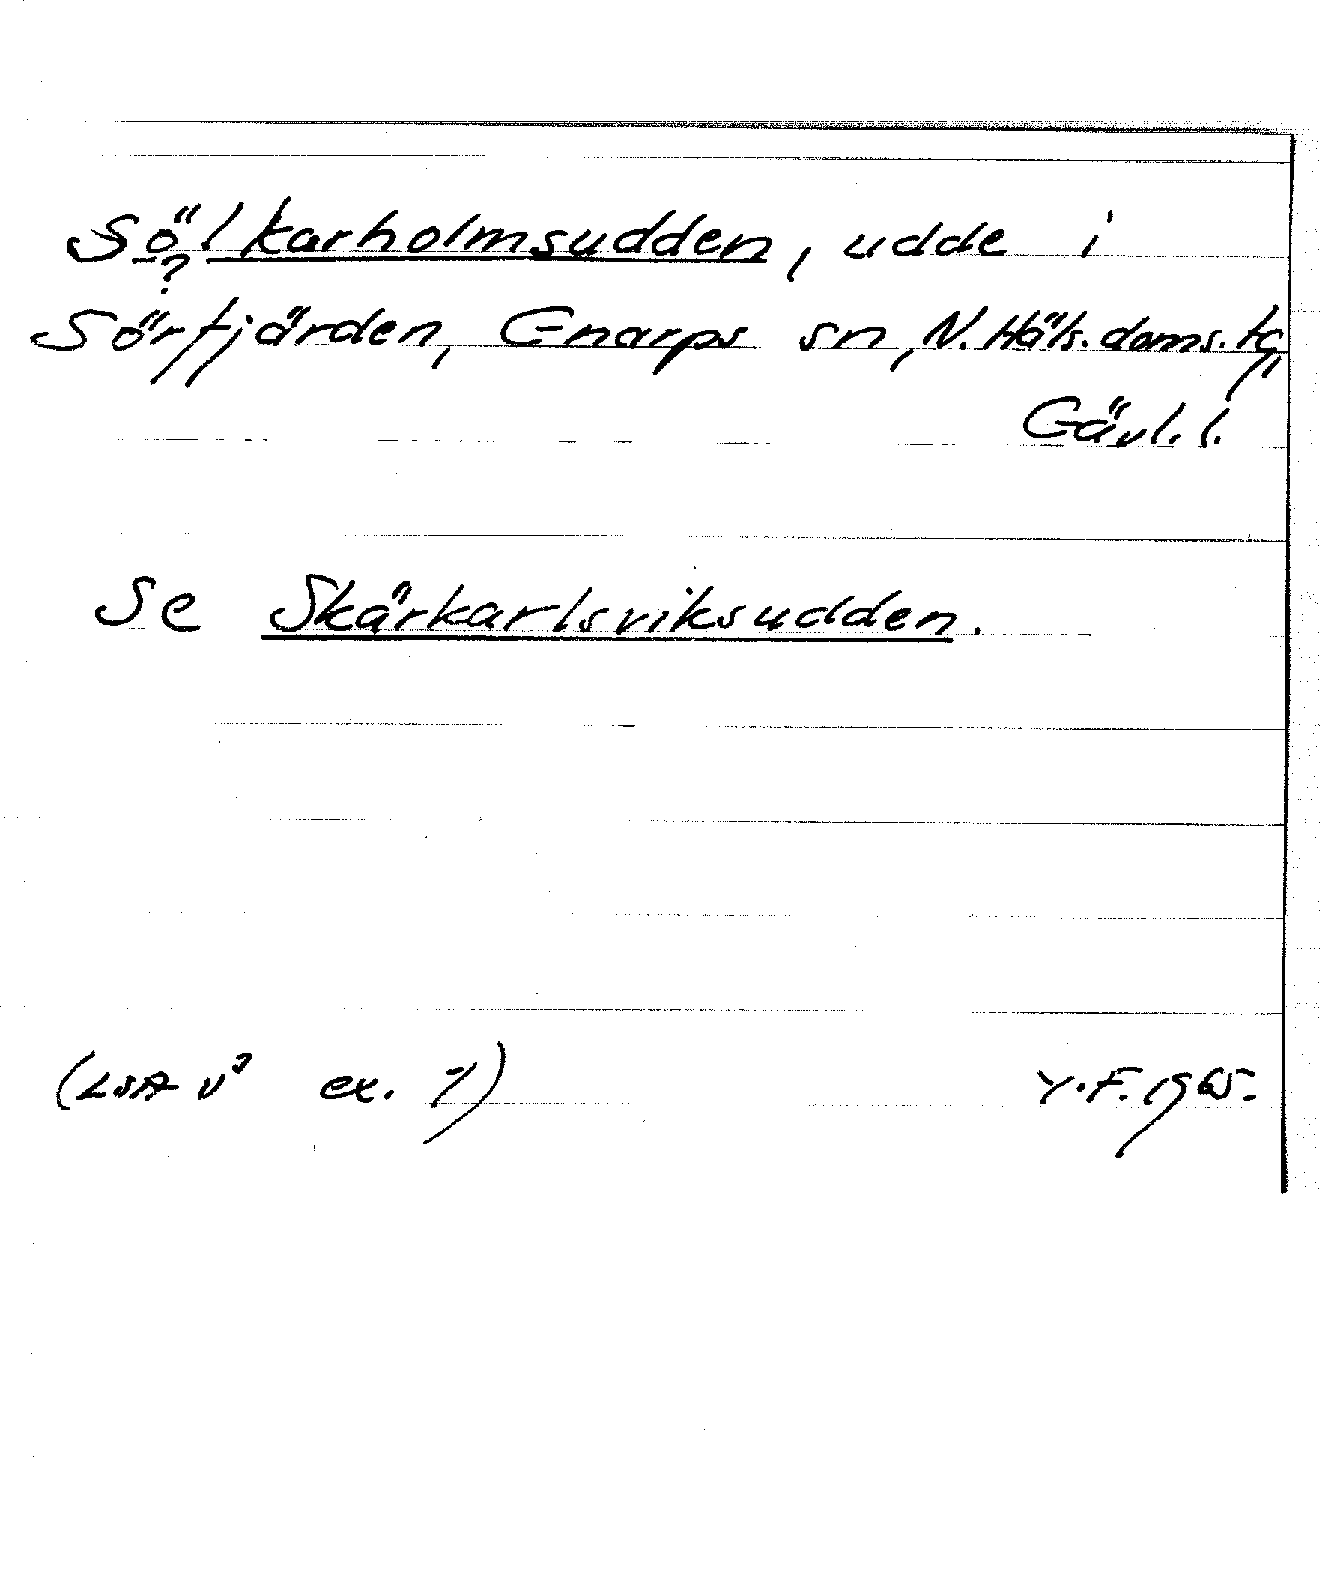 Sölkarholmsudden, udde i
?
Sörfjärden, Gnarps sn, N. Häls. doms. tg
Gävl. l.
Se Skärkarlsviksudden.
(LSA v³ ex. 7)
Y.F. 1965.